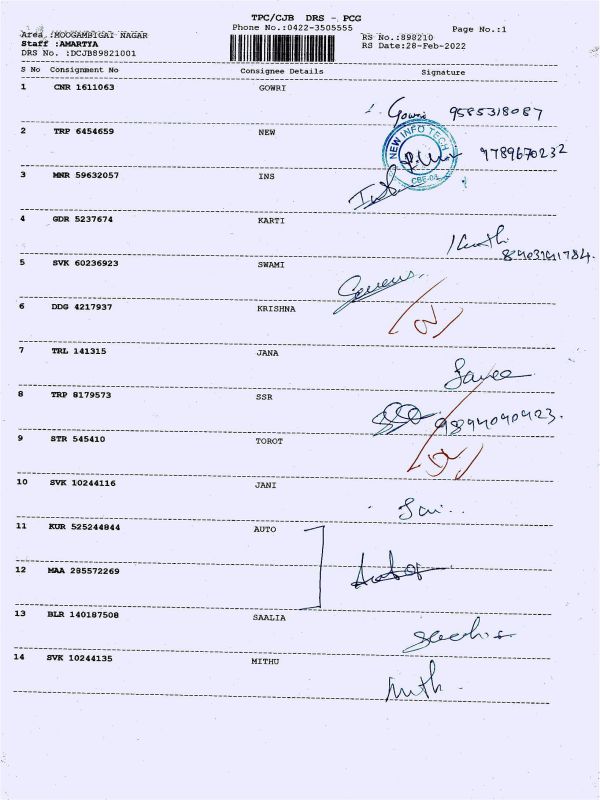 TPC/CJB DRS - PCG
Phone No.:0422-3505555
Page No.:1
Area :MOOGAMBIGAI NAGAR
Staff :AMARTYA
DRS No. :DCJB89821001
RS No.:898210
RS Date:28-Feb-2022
S No Consignment No Consignee Details Signature
1 CNR 1611063 GOWRI
Gowri 9585318087
2 TRP 6454659 NEW
NEW INFO TECH
9789670232
3 MNR 59632057 INS
4 GDR 5237674 KARTI
5 SVK 60236923 SWAMI
6 DDG 4217937 KRISHNA
7 TRL 141315 JANA
8 TRP 8179573 SSR
9894090423.
9 STR 545410 TOROT
10 SVK 10244116 JANI
11 KUR 525244844 AUTO
12 MAA 285572269
13 BLR 140187508 SAALIA
14 SVK 10244135 MITHU